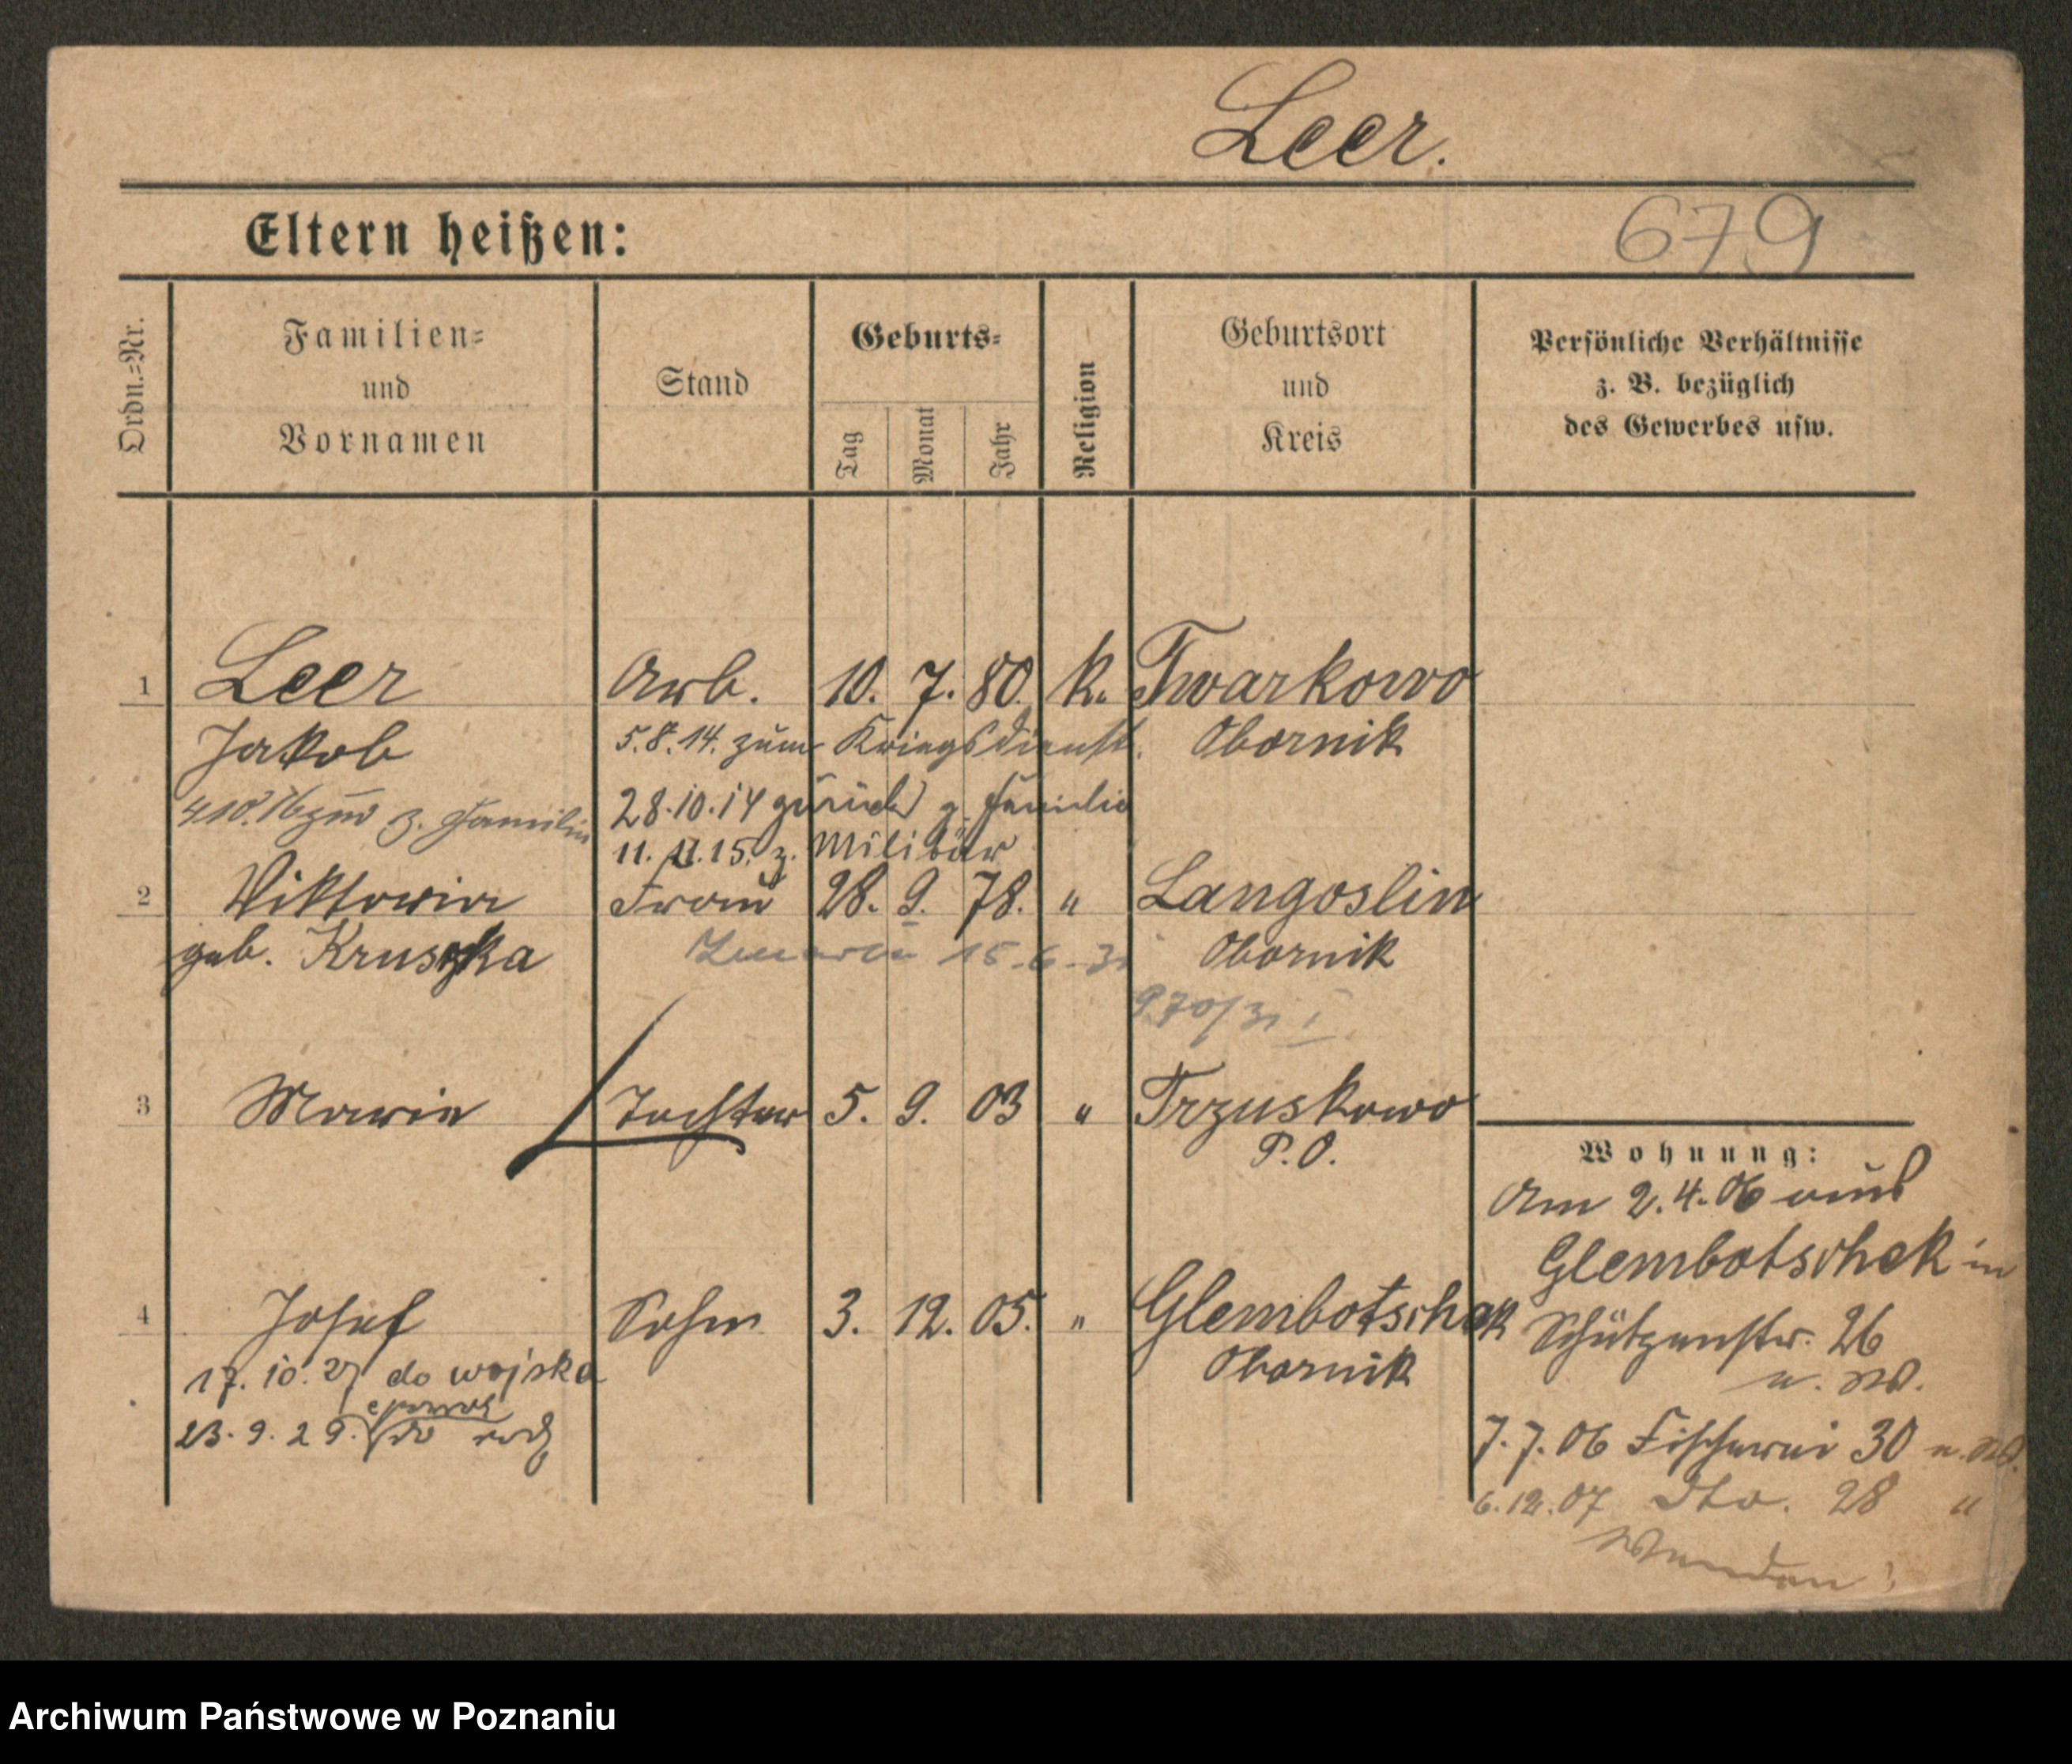 Leer.
Eltern heißen:
679
Ordn.=Nr.
Familien=
und
Vornamen
Stand
Geburts=
Tag
Monat
Jahr
Religion
Geburtsort
und
Kreis
Persönliche Verhältnisse
z. B. bezüglich
des Gewerbes usw.
1 Leer Arb. 10. 7. 80. k. Twarkowo
Jakob 5.8.14. zum Kriegsdienst. Obornik
z. Familie 28.10.14 zurück z. Familie
11. 11. 15. z. Militär
2 Viktoria Frau 28. 9. 78. " Langoslin
geb. Kruszka 15.6.31 Obornik
970/31 I
3 Marie Tochter 5. 9. 03 " Trzuskowo
P.O.
Wohnung:
Am 2.4.06 aus
Glembotschek in
4 Josef Sohn 3. 12. 05. " Glembotschek
Obornik
Schützenstr. 26
17.10.27 do wojska
23.9.29. do
7.7.06 Fischerei 30
6.12.07 Dto. 28 "
Archiwum Państwowe w Poznaniu